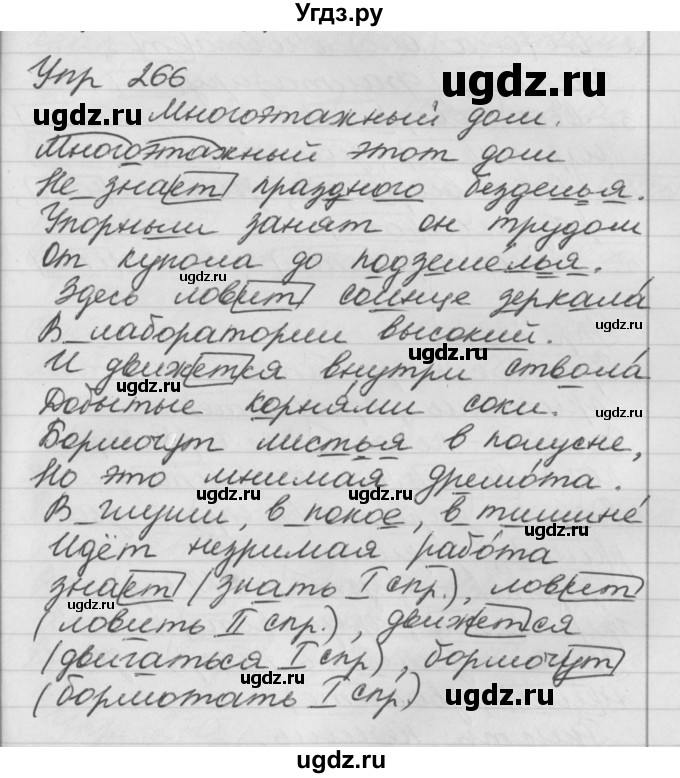 Угдз.ру
Упр 266
ugdz.ru
ugdz.ru
Многоэтажный дом.
ugdz.ru
Многоэтажный этот дом
Не знает праздного безделья.
ugdz.ru
Упорным занят он трудом
От купола до подземелья.
ugdz.ru
ugdz.ru
Здесь ловит солнце зеркала
В лаборатории высокий.
ugdz.ru
ugdz.ru
И движется внутри ствола
ugdz.ru
Добытые корнями соки.
ugdz.ru
Бормочут листья в полусне,
Но это мнимая дремота.
ugdz.ru
ugdz.ru
ugdz.ru
В глуши, в покое, в тишине
Идёт незримая работа
ugdz.ru
знает (знать I спр.), ловит
ugdz.ru
(ловить II спр.), движется
(двигаться I спр), бормочут
ugdz.ru
(бормотать I спр)
ugdz.ru
ugdz.ru
ugdz.ru